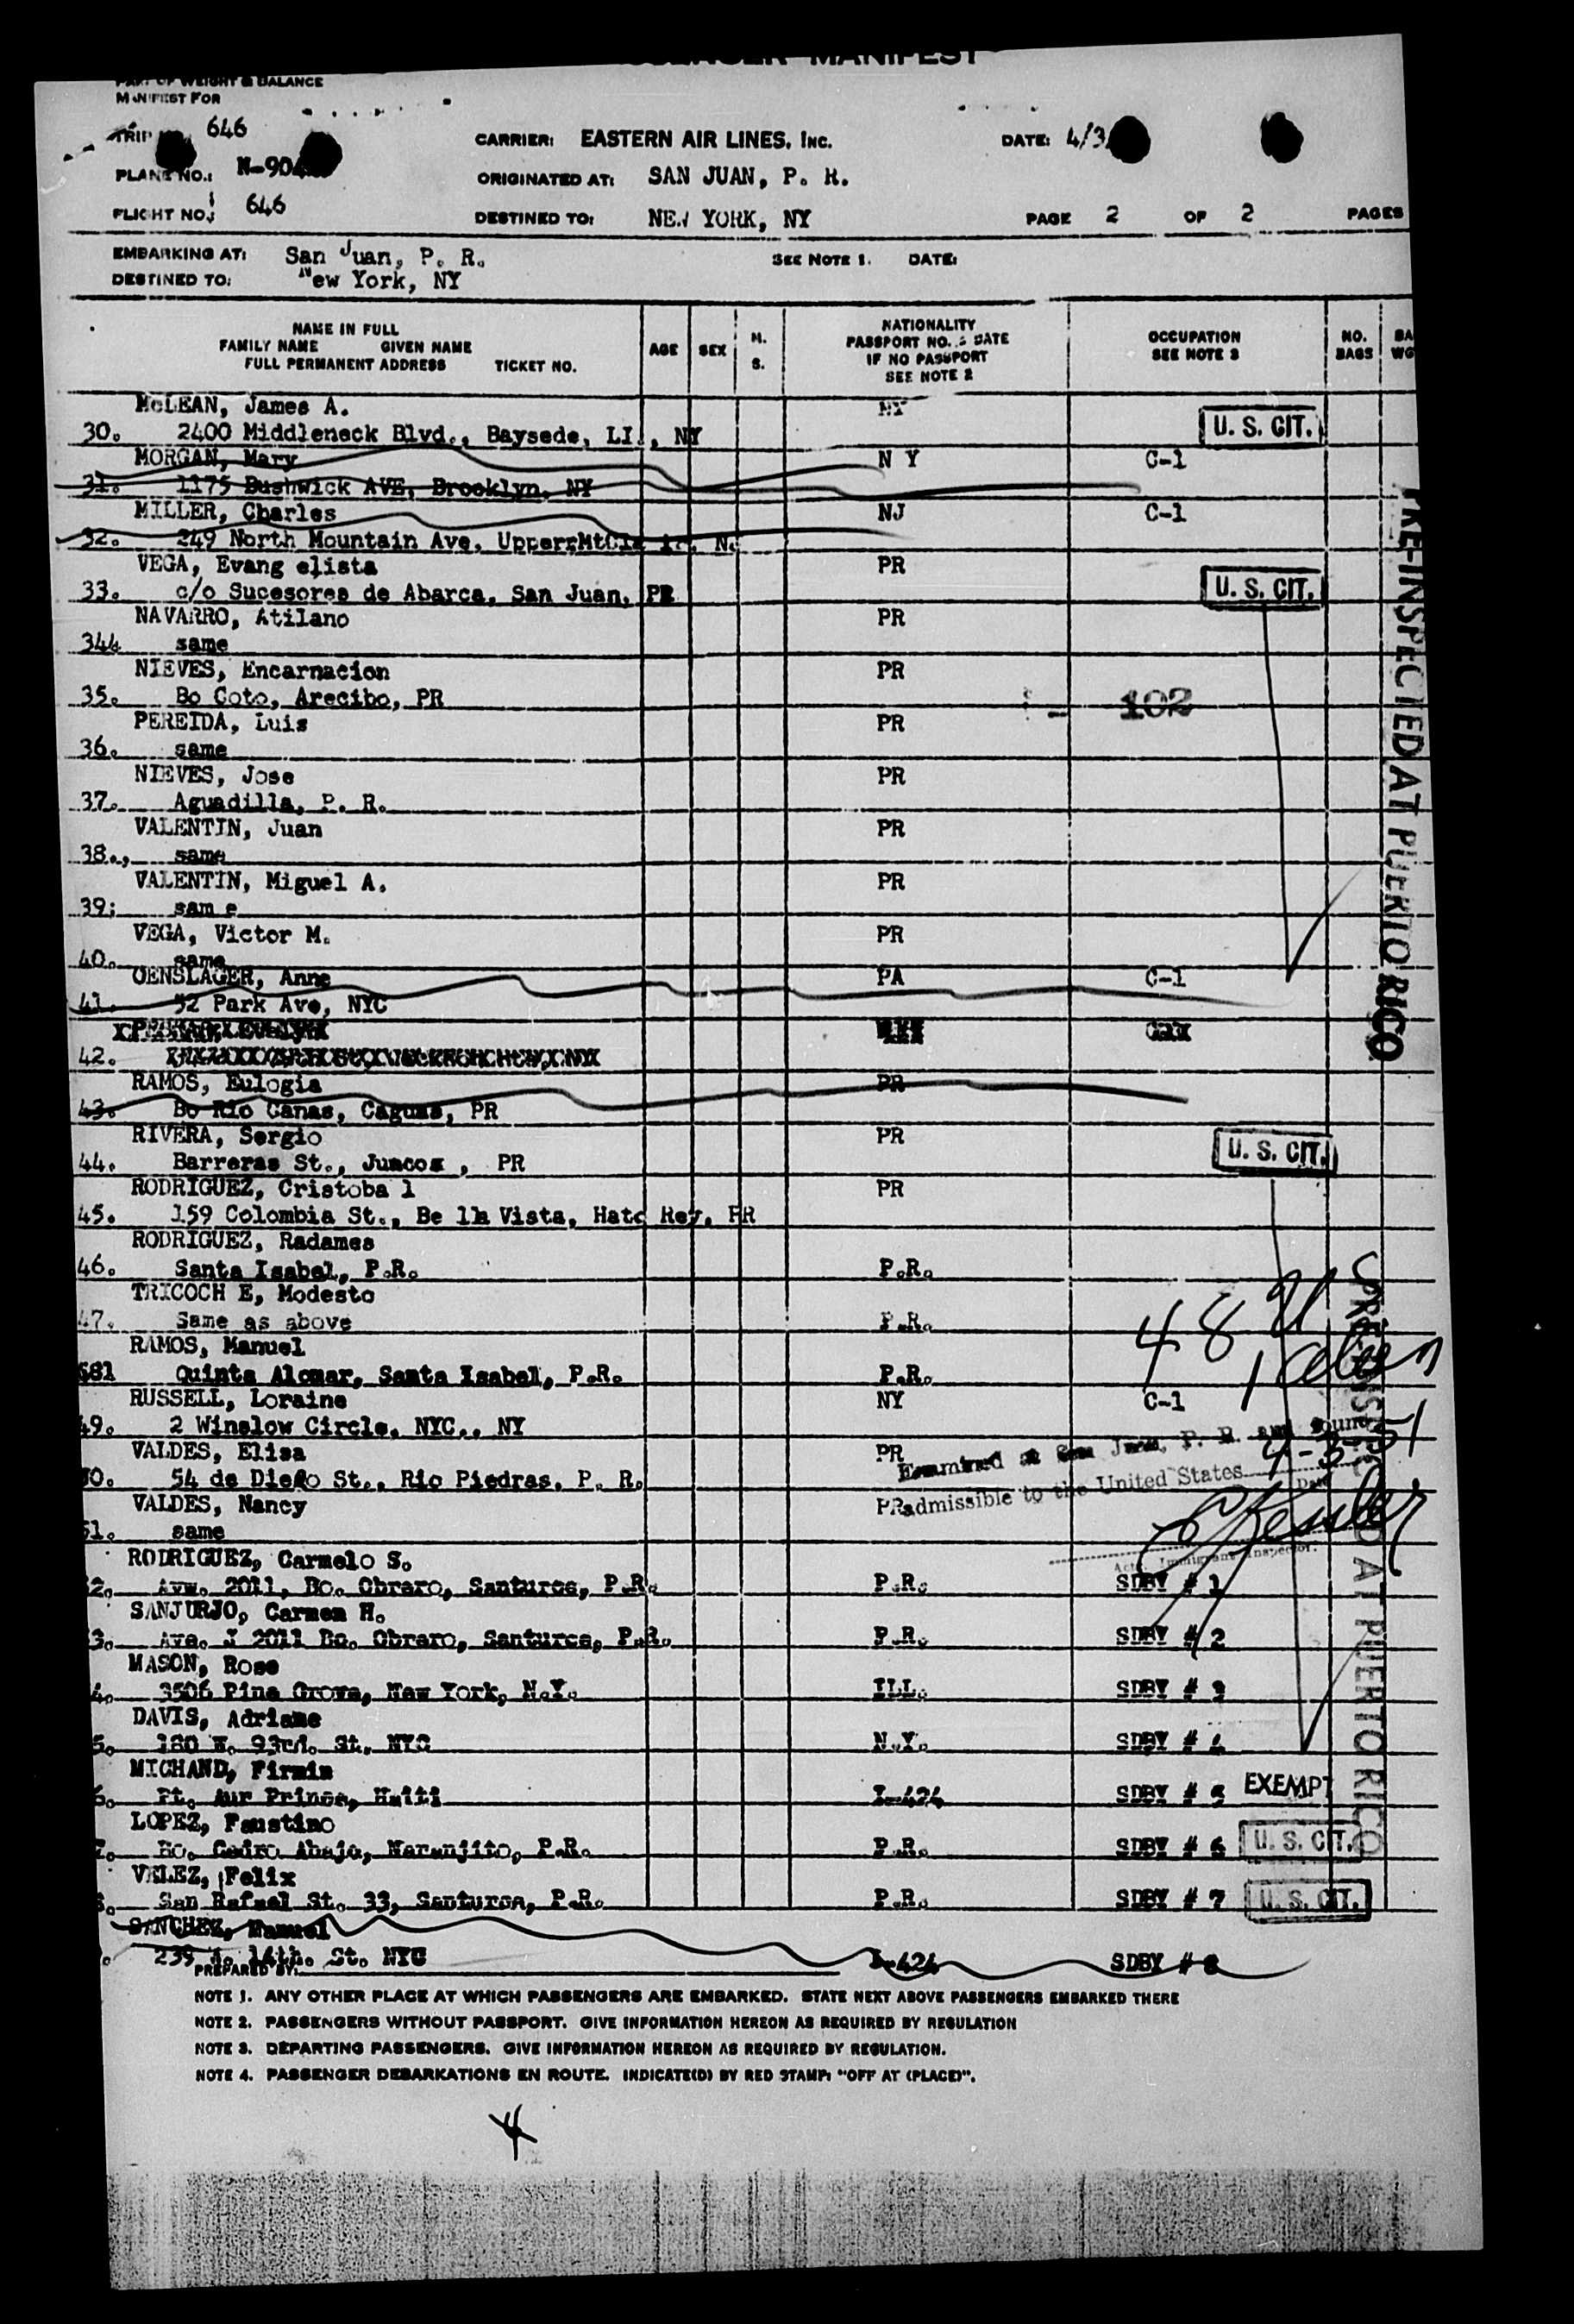 PASSENGER MANIFEST
PART OF WEIGHT & BALANCE
MANIFEST FOR
TRIP 646
CARRIER: EASTERN AIR LINES, INC.
DATE: 4/3
PLANE NO.: N-90
ORIGINATED AT: SAN JUAN, P. R.
FLIGHT NO.: 646
DESTINED TO: NEW YORK, NY
PAGE 2 OF 2 PAGES
EMBARKING AT: San Juan, P. R.
SEE NOTE 1. DATE:
DESTINED TO: New York, NY
NAME IN FULL
FAMILY NAME GIVEN NAME
FULL PERMANENT ADDRESS TICKET NO.
AGE
SEX
M.
S.
NATIONALITY
PASSPORT NO. & DATE
IF NO PASSPORT
SEE NOTE 2
OCCUPATION
SEE NOTE 3
NO.
BAGS
BA
WG
McLEAN, James A. NY
30. 2400 Middleneck Blvd., Baysede, LI., NY U. S. CIT.
MORGAN, Mary N Y C-1
31. 1175 Bushwick AVE, Brooklyn, NY
MILLER, Charles NJ C-1
32. 249 North Mountain Ave,
VEGA, Evang elista PR
33. c/o Sucesores de Abarca, San Juan, PR U. S. CIT.
NAVARRO, Atilano PR
344 same
NIEVES, Encarnacion PR
35. Bo Coto, Arecibo, PR 102
PEREIDA, Luis PR
36. same
NIEVES, Jose PR
37. Aguadilla, P. R.
VALENTIN, Juan PR
38., same
VALENTIN, Miguel A. PR
39: sam e
VEGA, Victor M. PR
40. same
OENSLAGER, Anne PA C-1
41. 52 Park Ave, NYC
42.
RAMOS, Eulogia PR
43. Bo Rio Canas, Caguas, PR
RIVERA, Sergio PR
44. Barreras St., Juncos , PR U. S. CIT.
RODRIGUEZ, Cristoba l PR
45. 159 Colombia St., Be lla Vista, Hato Rey, PR
RODRIGUEZ, Radames
46. Santa Isabel, P.R. P.R.
TRICOCH E, Modesto
47. Same as above P.R.
48 U
RAMOS, Manuel
Quinta Alomar, Santa Isabel, P.R. P.R.
1 alien
RUSSELL, Loraine NY C-1
49. 2 Winslow Circle, NYC., NY
VALDES, Elisa PR
Examined at San Juan, P. R. and found
4-3-51
50. 54 de Diego St., Rio Piedras, P. R.
admissible to the United States
Date
VALDES, Nancy PR
51. same
Immigrant Inspector.
RODRIGUEZ, Carmelo S.
2. Ave. 2011, Bo. Obrero, Santurce, P.R. P.R. SDBY # 1
SANJURJO, Carmen H.
3. Ave. J 2011 Bo. Obrero, Santurce, P.R. P.R. SDBY # 2
MASON, Rose
4. 3506 Pine Grove, New York, N.Y. ILL. SDBY # 3
DAVIS, Adriane
5. 180 W. 93rd. St. NYC N.Y. SDBY # 4
MICHAND, Firmin
6. Pt. Aur Prince, Haiti I-424 SDBY # 5 EXEMPT
LOPEZ, Faustino
7. Bo. Cedro Abajo, Naranjito, P.R. P.R. SDBY # 6 U. S. CIT.
VELEZ, Felix
8. San Rafael St. 33, Santurce, P.R. P.R. SDBY # 7 U. S. CIT.
SANCHEZ, Manuel
239 14th. St. NYC I-424 SDBY # 8
PREPARED BY:
NOTE 1. ANY OTHER PLACE AT WHICH PASSENGERS ARE EMBARKED. STATE NEXT ABOVE PASSENGERS EMBARKED THERE
NOTE 2. PASSENGERS WITHOUT PASSPORT. GIVE INFORMATION HEREON AS REQUIRED BY REGULATION
NOTE 3. DEPARTING PASSENGERS. GIVE INFORMATION HEREON AS REQUIRED BY REGULATION.
NOTE 4. PASSENGER DEBARKATIONS EN ROUTE. INDICATE(D) BY RED STAMP: "OFF AT (PLACE)".
4
PRE-INSPECTED AT PUERTO RICO
PRE-INSPECTED AT PUERTO RICO